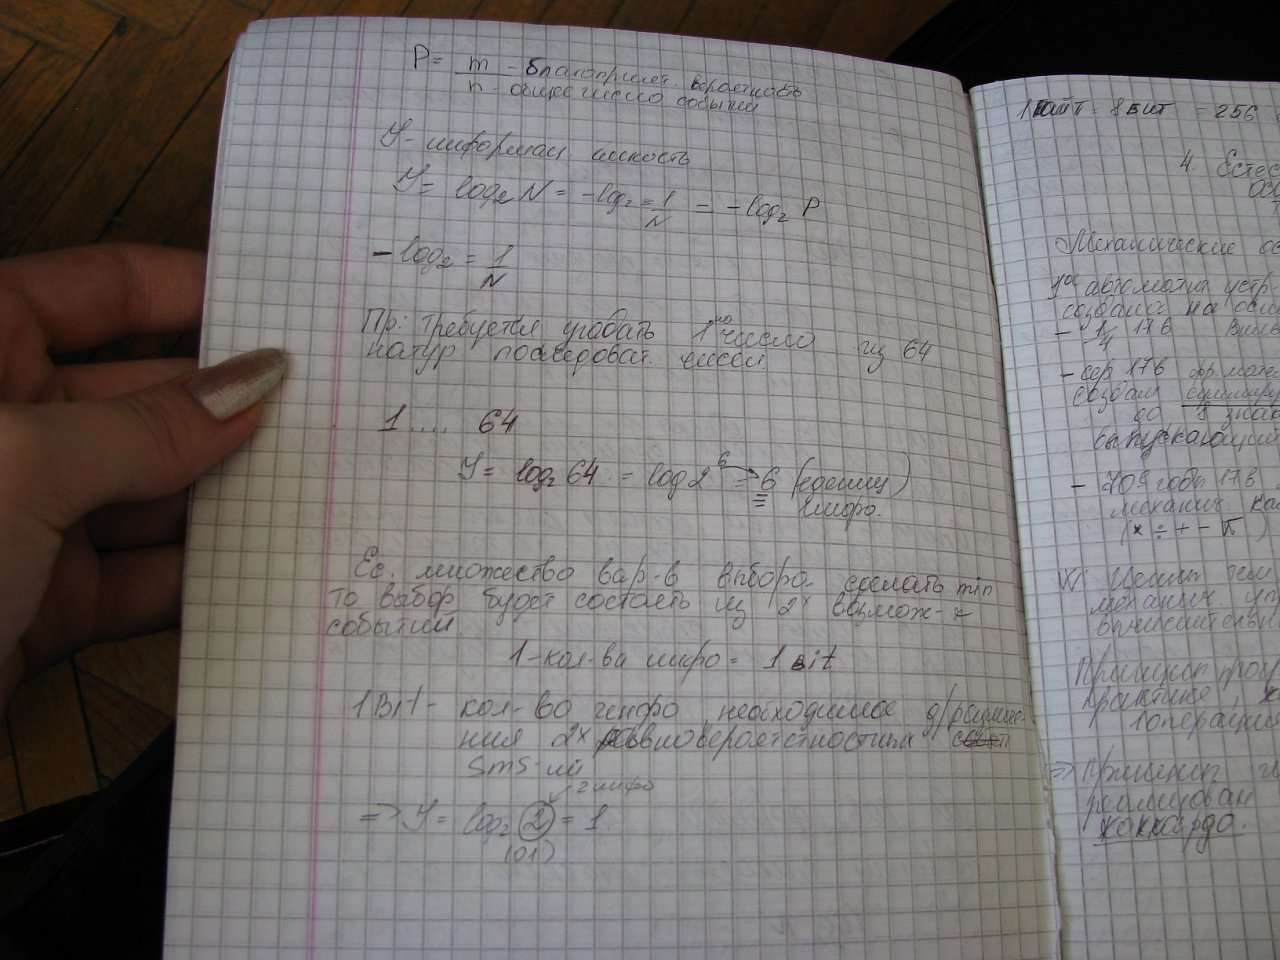 P = m - благоприят. вероятность
n - общее число событий
У - информац. ёмкость
У = log₂ N = -log₂ = 1/N = -log₂ P
- log₂ = 1/N
Пр: требуется угадать 1но число из 64
натур. последоват. чисел.
1 .... 64
У = log₂ 64 = log 2⁶ = 6 (единиц)
инфо.
Ес. множество вар-в выбора сделать min
то выбор будет состоять из 2х возмож-х
событий.
1-кол-ва инфо = 1 bit
1 Bit - кол-во инфо, необходимое д/различе-
ния 2х равновероятстностных
sms-ий
2 инфо
=> У = log₂ 2 = 1.
(01)
1 байт = 8 бит = 256
4. Естес
Механические ос
1ое автоматич устр
создано на осно
- 1/4 17в
- сер 17в
создал суммиру
до 8 знач
выпускающий
- 70е годы 17в
механич. кал
(× ÷ + - √ )
механич. уп
вычислительн
Принцип прог
практике
1 операции
=> Принцип
реализован
Жаккарда.